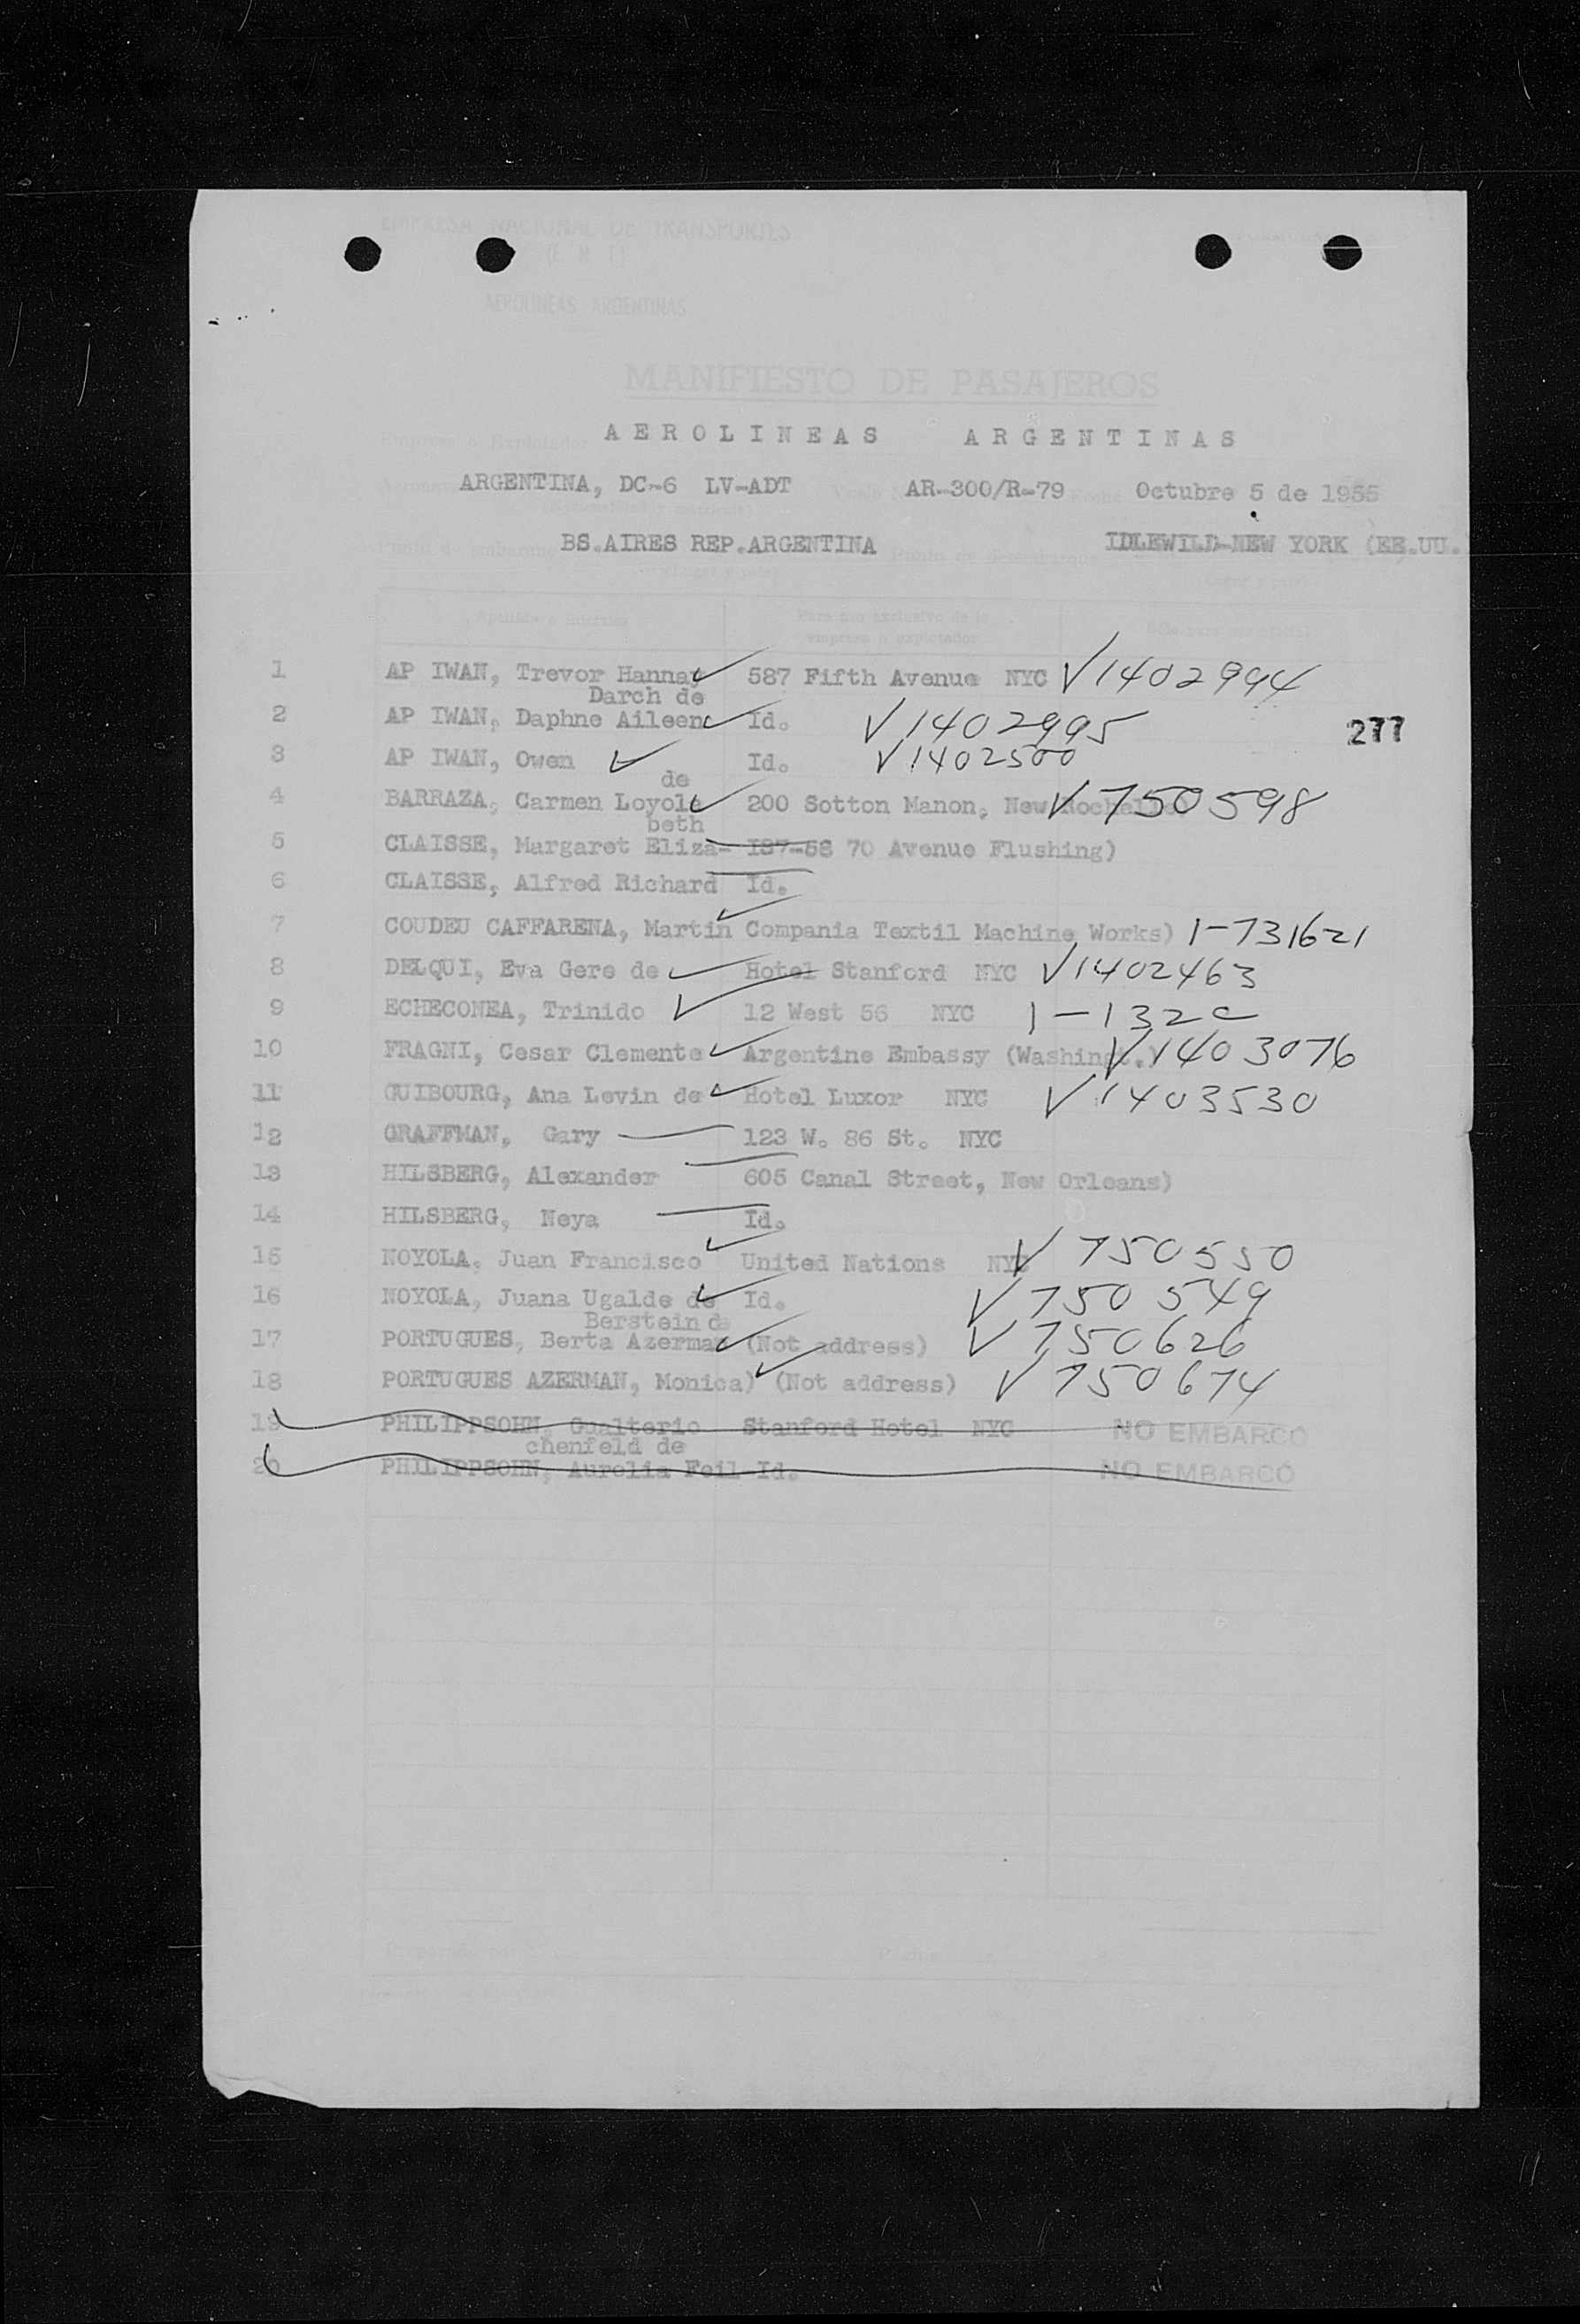 EMPRESA NACIONAL DE TRANSPORTES
(E. N. T.)
AEROLINEAS ARGENTINAS
MANIFIESTO DE PASAJEROS
AEROLINEAS ARGENTINAS
ARGENTINA, DC-6 LV-ADT AR-300/R-79 Octubre 5 de 1955
BS.AIRES REP.ARGENTINA IDLEWILD-NEW YORK (EE.UU.
1 AP IWAN, Trevor Hannay 587 Fifth Avenue NYC V1402994
Darch de
2 AP IWAN, Daphne Aileen Id. V1402995
277
3 AP IWAN, Owen Id. V1402500
de
4 BARRAZA, Carmen Loyola 200 Sotton Manon, New Rochelle) V750598
beth
5 CLAISSE, Margaret Eliza- 137-58 70 Avenue Flushing)
6 CLAISSE, Alfred Richard Id.
7 COUDEU CAFFARENA, Martin Compania Textil Machine Works) 1-731621
8 DELQUI, Eva Gere de Hotel Stanford NYC V1402463
9 ECHECONEA, Trinido 12 West 56 NYC 1-132
10 FRAGNI, Cesar Clemente Argentine Embassy (Washingt.) V1403076
11 GUIBOURG, Ana Levin de Hotel Luxor NYC V1403530
12 GRAFFMAN, Gary 123 W. 86 St. NYC
13 HILSBERG, Alexander 605 Canal Street, New Orleans)
14 HILSBERG, Neya Id.
15 NOYOLA, Juan Francisco United Nations NYC V750550
16 NOYOLA, Juana Ugalde de Id. V750549
Berstein de
17 PORTUGUES, Berta Azerman (Not address) V750626
18 PORTUGUES AZERMAN, Monica) (Not address) V750674
19 PHILIPPSOHN, Gualterio Stanford Hotel NYC NO EMBARCÓ
chenfeld de
20 PHILIPPSOHN, Aurelia Feil-Id. NO EMBARCÓ